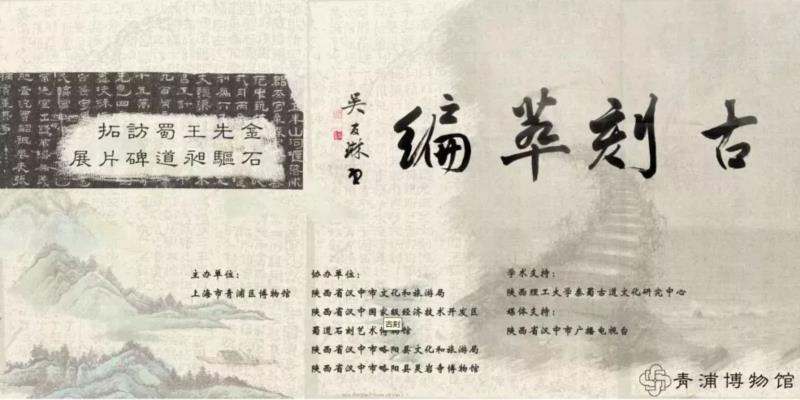 古刻萃編
金石
先驅
王昶
蜀道
訪碑
拓片
展
主办单位：
上海市青浦区博物馆
协办单位：
陕西省汉中市文化和旅游局
陕西省汉中国家级经济技术开发区
蜀道石刻艺术博物馆
古刻
陕西省汉中市略阳县文化和旅游局
陕西省汉中市略阳县灵岩寺博物馆
学术支持：
陕西理工大学秦蜀古道文化研究中心
媒体支持：
陕西省汉中市广播电视台
青浦博物馆